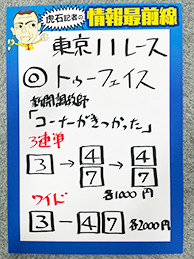 虎石記者の
情報最前線
東京11レース
◎トゥーフェイス
「コーナーがきつかった」
3連単
3→47→47
各1000円
ワイド
3-47 各2000円